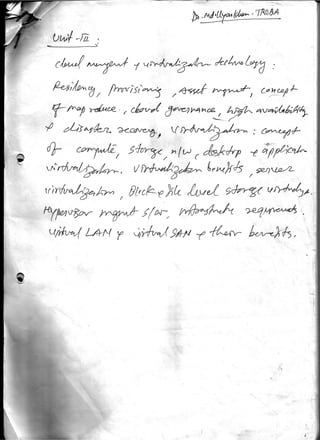 Dr. Md. Iliyas Khan - TRCBA
Unit - III :
cloud mangment & virtualization technology :
Resiliency, Provisioning, Asset mgmt, concept
of map reduce, cloud governance, high availability
& disaster recovery, virtualization : concept
of compute, storage, n/w, desktop & application
virtualization. Virtualization benefits, server
virtualization, Block & file level storage virtualiza.
Hypervisor mgmt s/w, infrastructure requirements.
virtual LAN & virtual SAN & their benefits.